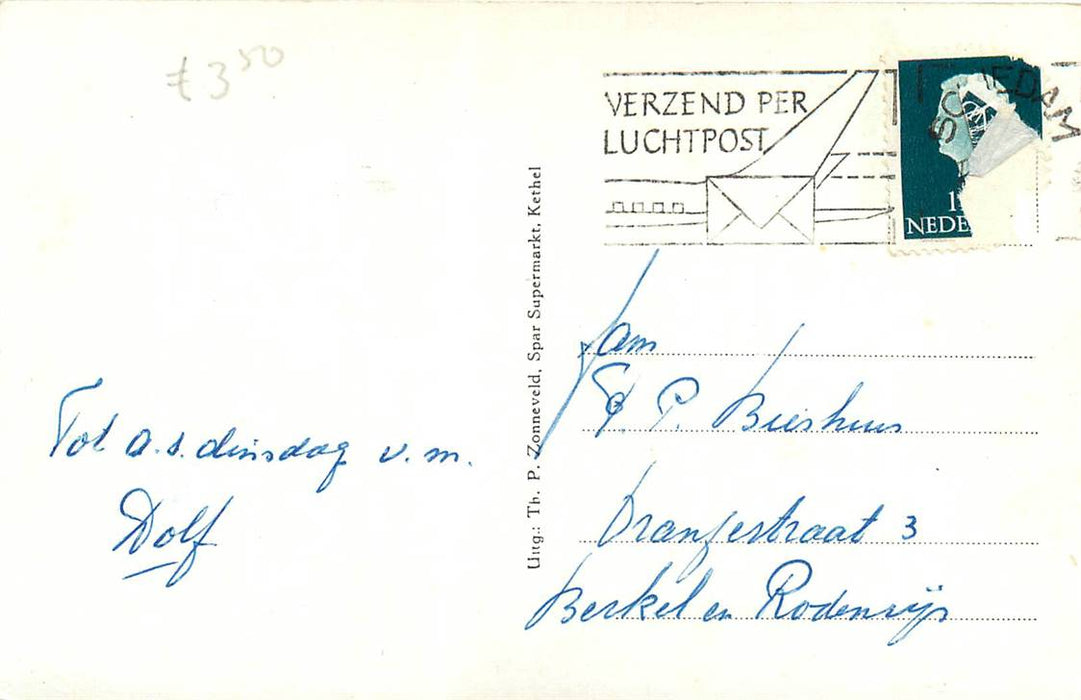 £ 3 50
VERZEND PER
LUCHTPOST
SCHIEDAM
NEDE
Uitg.: Th. P. Zonneveld, Spar Supermarkt, Kethel
Tot a.s. dinsdag v.m.
Dolf
Fam
P. Bieshuus
Oranjestraat 3
Berkel en Rodenrijs